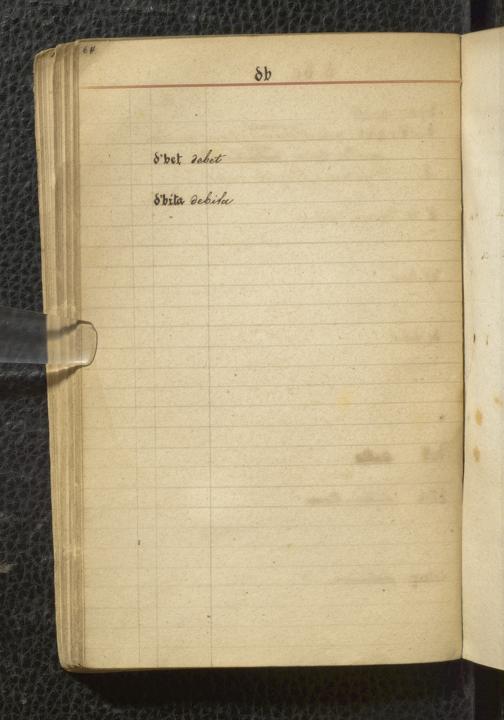 64
db
d'bet debet
d'bita debita